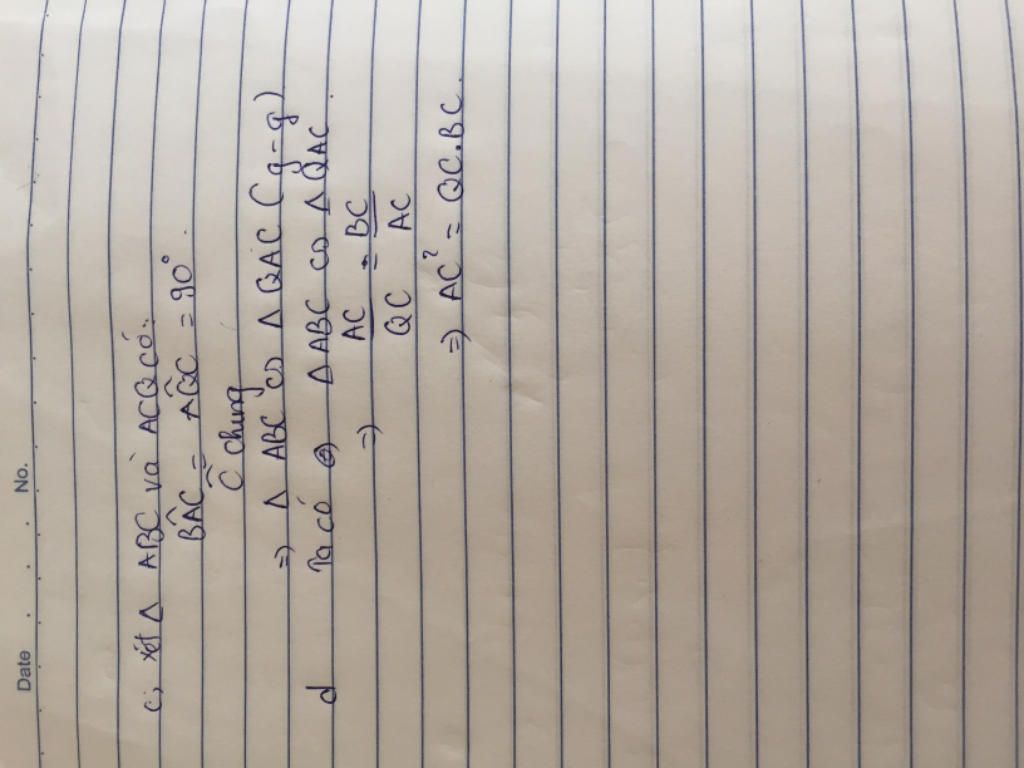 Date . . No.
c, xét Δ ABC và ACQ có:
BÂC = AQ̂C = 90°.
Ĉ chung
=) Δ ABC ᔕ Δ QAC (g-g)
d Ta có Δ ABC ᔕ Δ QAC.
=) AC/QC = BC/AC
=) AC² = QC.BC.